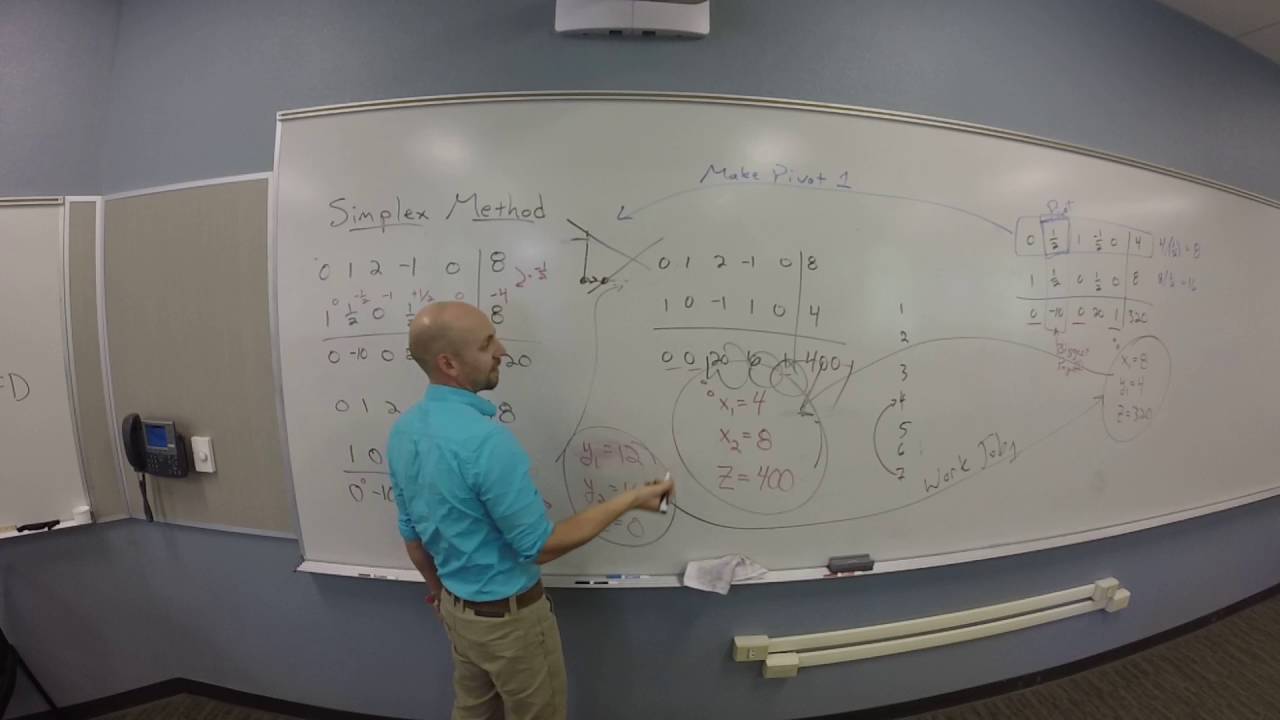 =D
Simplex Method
0 1 2 -1 0 8
2·-1/2
0 -1/2 -1 +1/2 0 -4
1 1/2 0 1/2 8
0 -10 0 20
0 1 2 8
1 0
0 -10
Make Pivot 1
0 1 2 -1 0 8
1 0 -1 1 0 4
0 0 20 10 1 400
x₁=4
x₂=8
Z=400
y₁=12
y₂=
=0
1
2
3
4
5
6
7
Work Toby
0 1/2 1 -1/2 0 4
4/(1/2)=8
1 1/2 0 1/2 0 8
8/1/2=16
0 -10 0 20 1 320
Biggest
x₁=8
y₁=4
Z=320